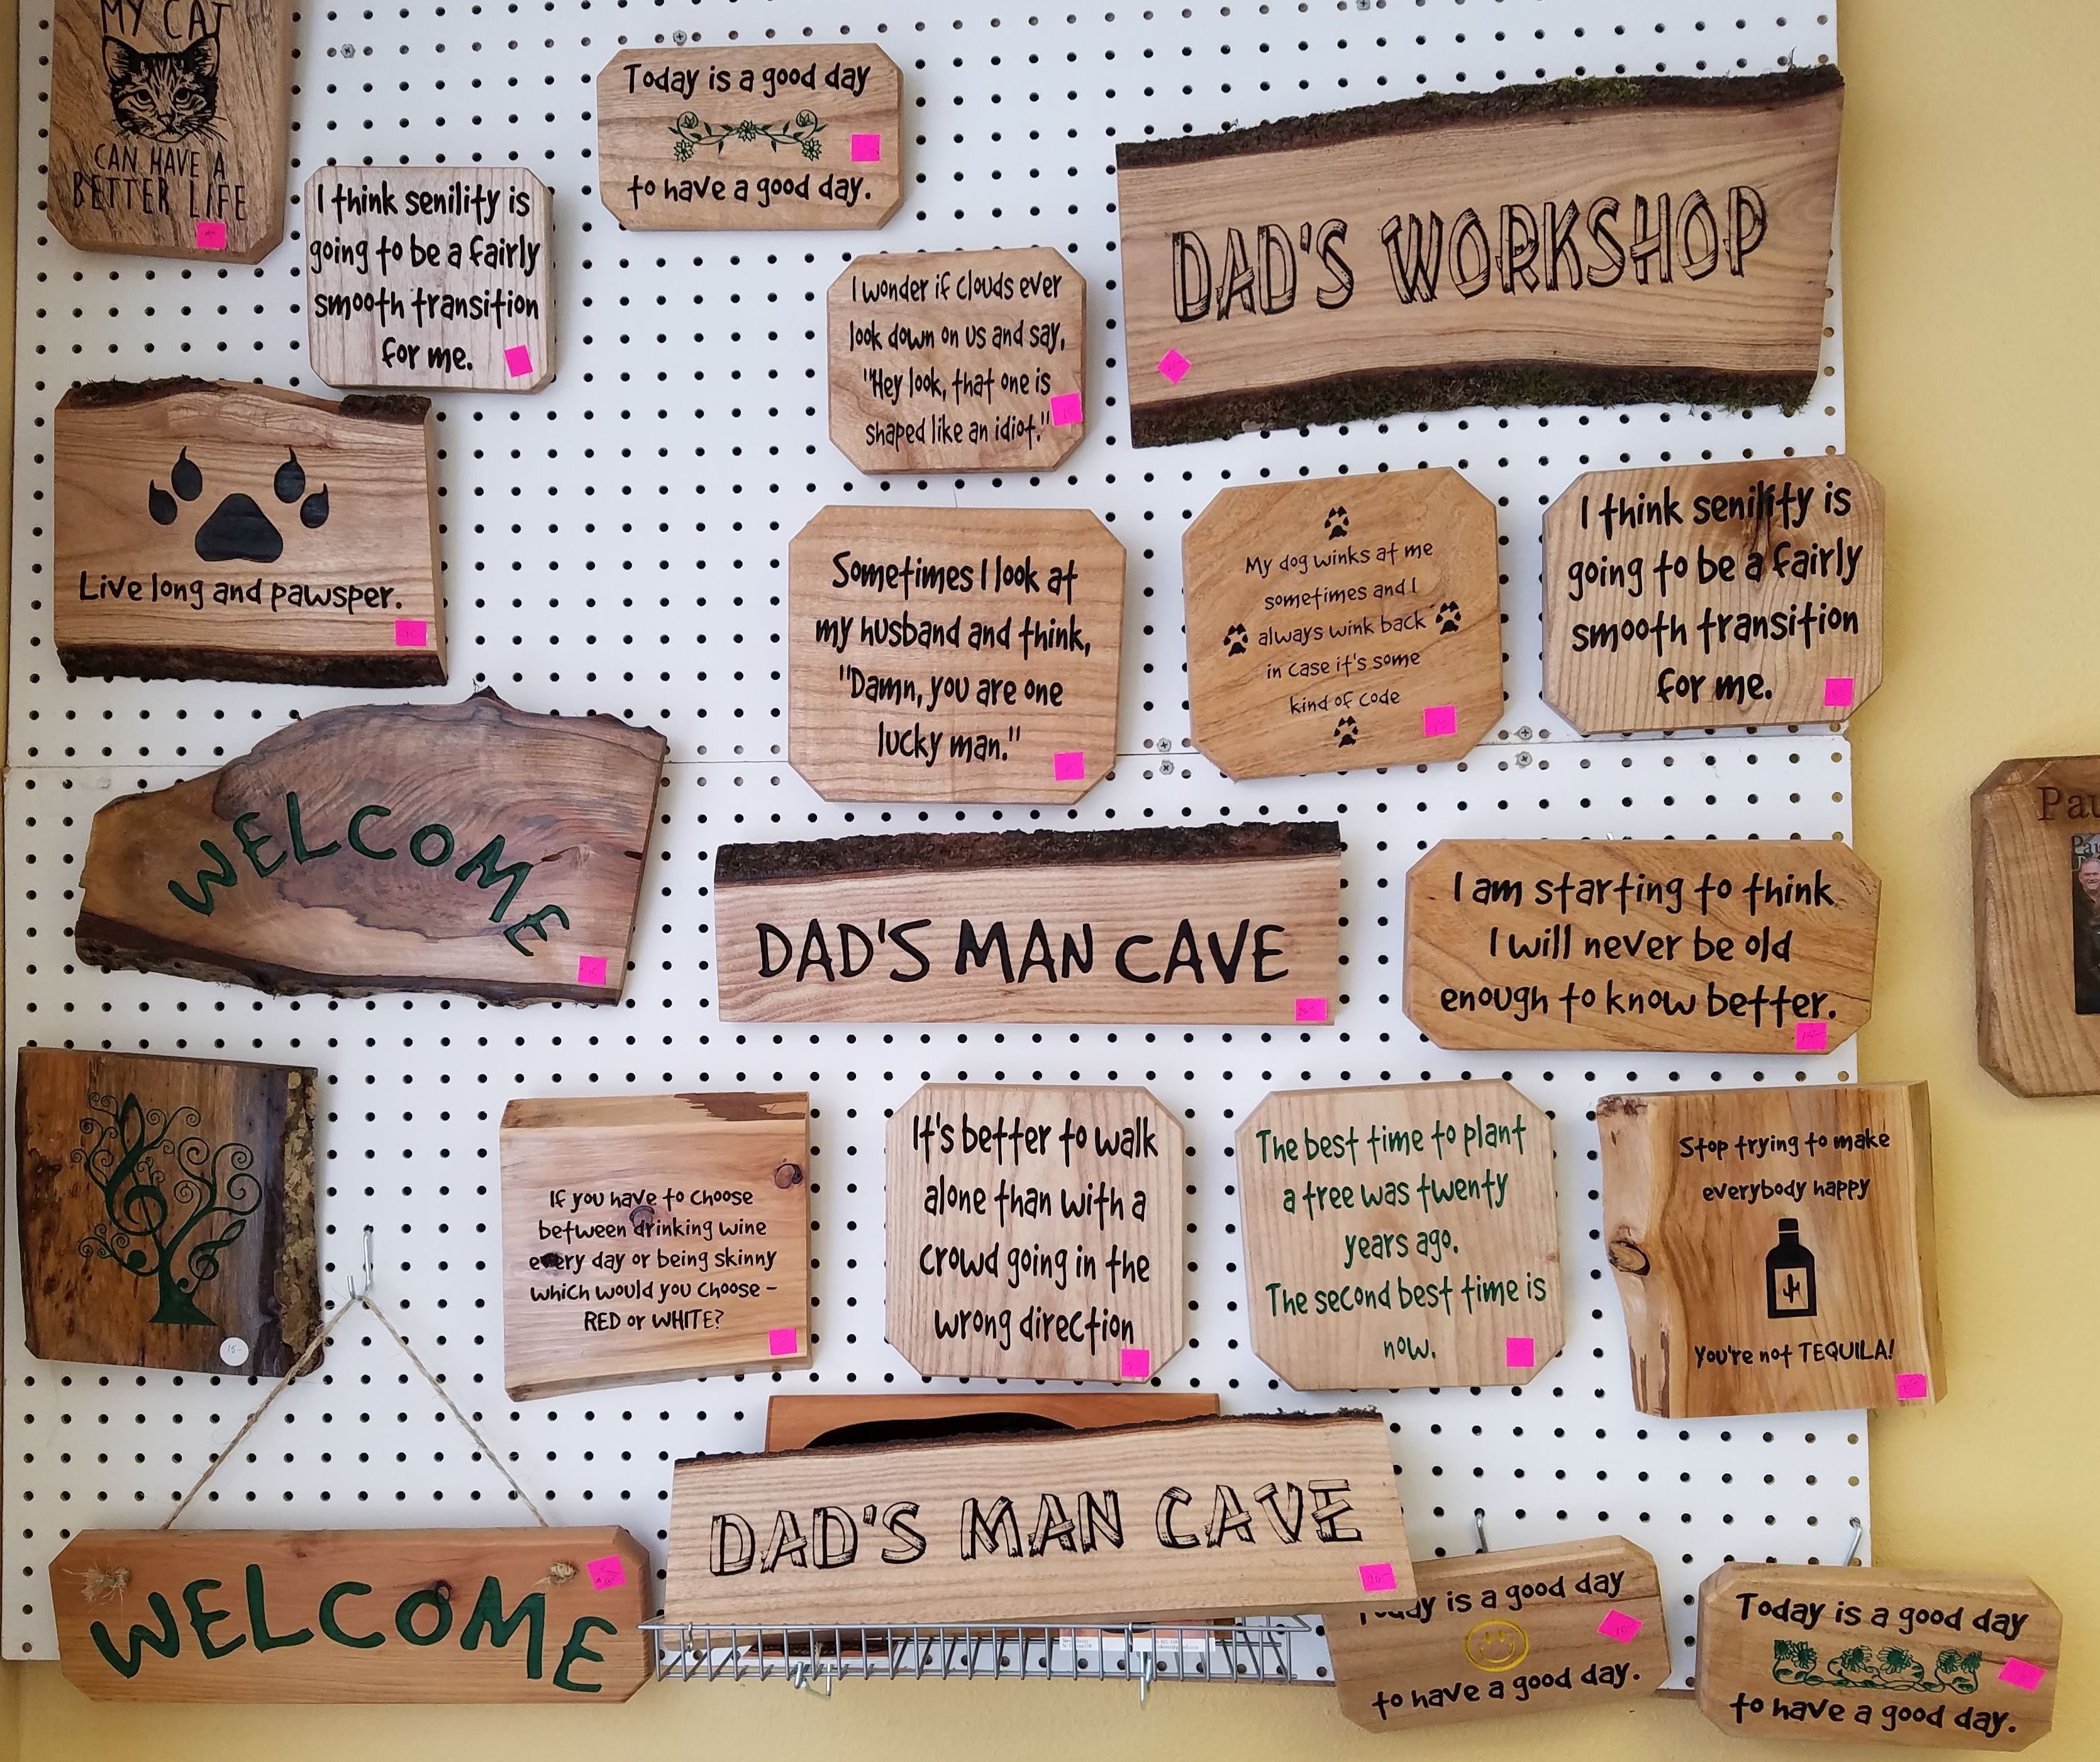 MY CAT
CAN HAVE A
BETTER LIFE
Today is a good day
to have a good day.
I think senility is
going to be a fairly
smooth transition
for me.
I wonder if clouds ever
look down on us and say,
"Hey look, that one is
shaped like an idiot."
DAD'S WORKSHOP
Live long and pawsper.
Sometimes I look at
my husband and think,
"Damn, you are one
lucky man."
My dog winks at me
sometimes and I
always wink back
in case it's some
kind of code
I think senility is
going to be a fairly
smooth transition
for me.
WELCOME
DAD'S MAN CAVE
I am starting to think
I will never be old
enough to know better.
15-
15-
If you have to choose
between drinking wine
every day or being skinny
which would you choose -
RED or WHITE?
It's better to walk
alone than with a
crowd going in the
wrong direction
The best time to plant
a tree was twenty
years ago.
The second best time is
now.
Stop trying to make
everybody happy
You're not TEQUILA!
WELCOME
DAD'S MAN CAVE
20-
Today is a good day
to have a good day.
Today is a good day
to have a good day.